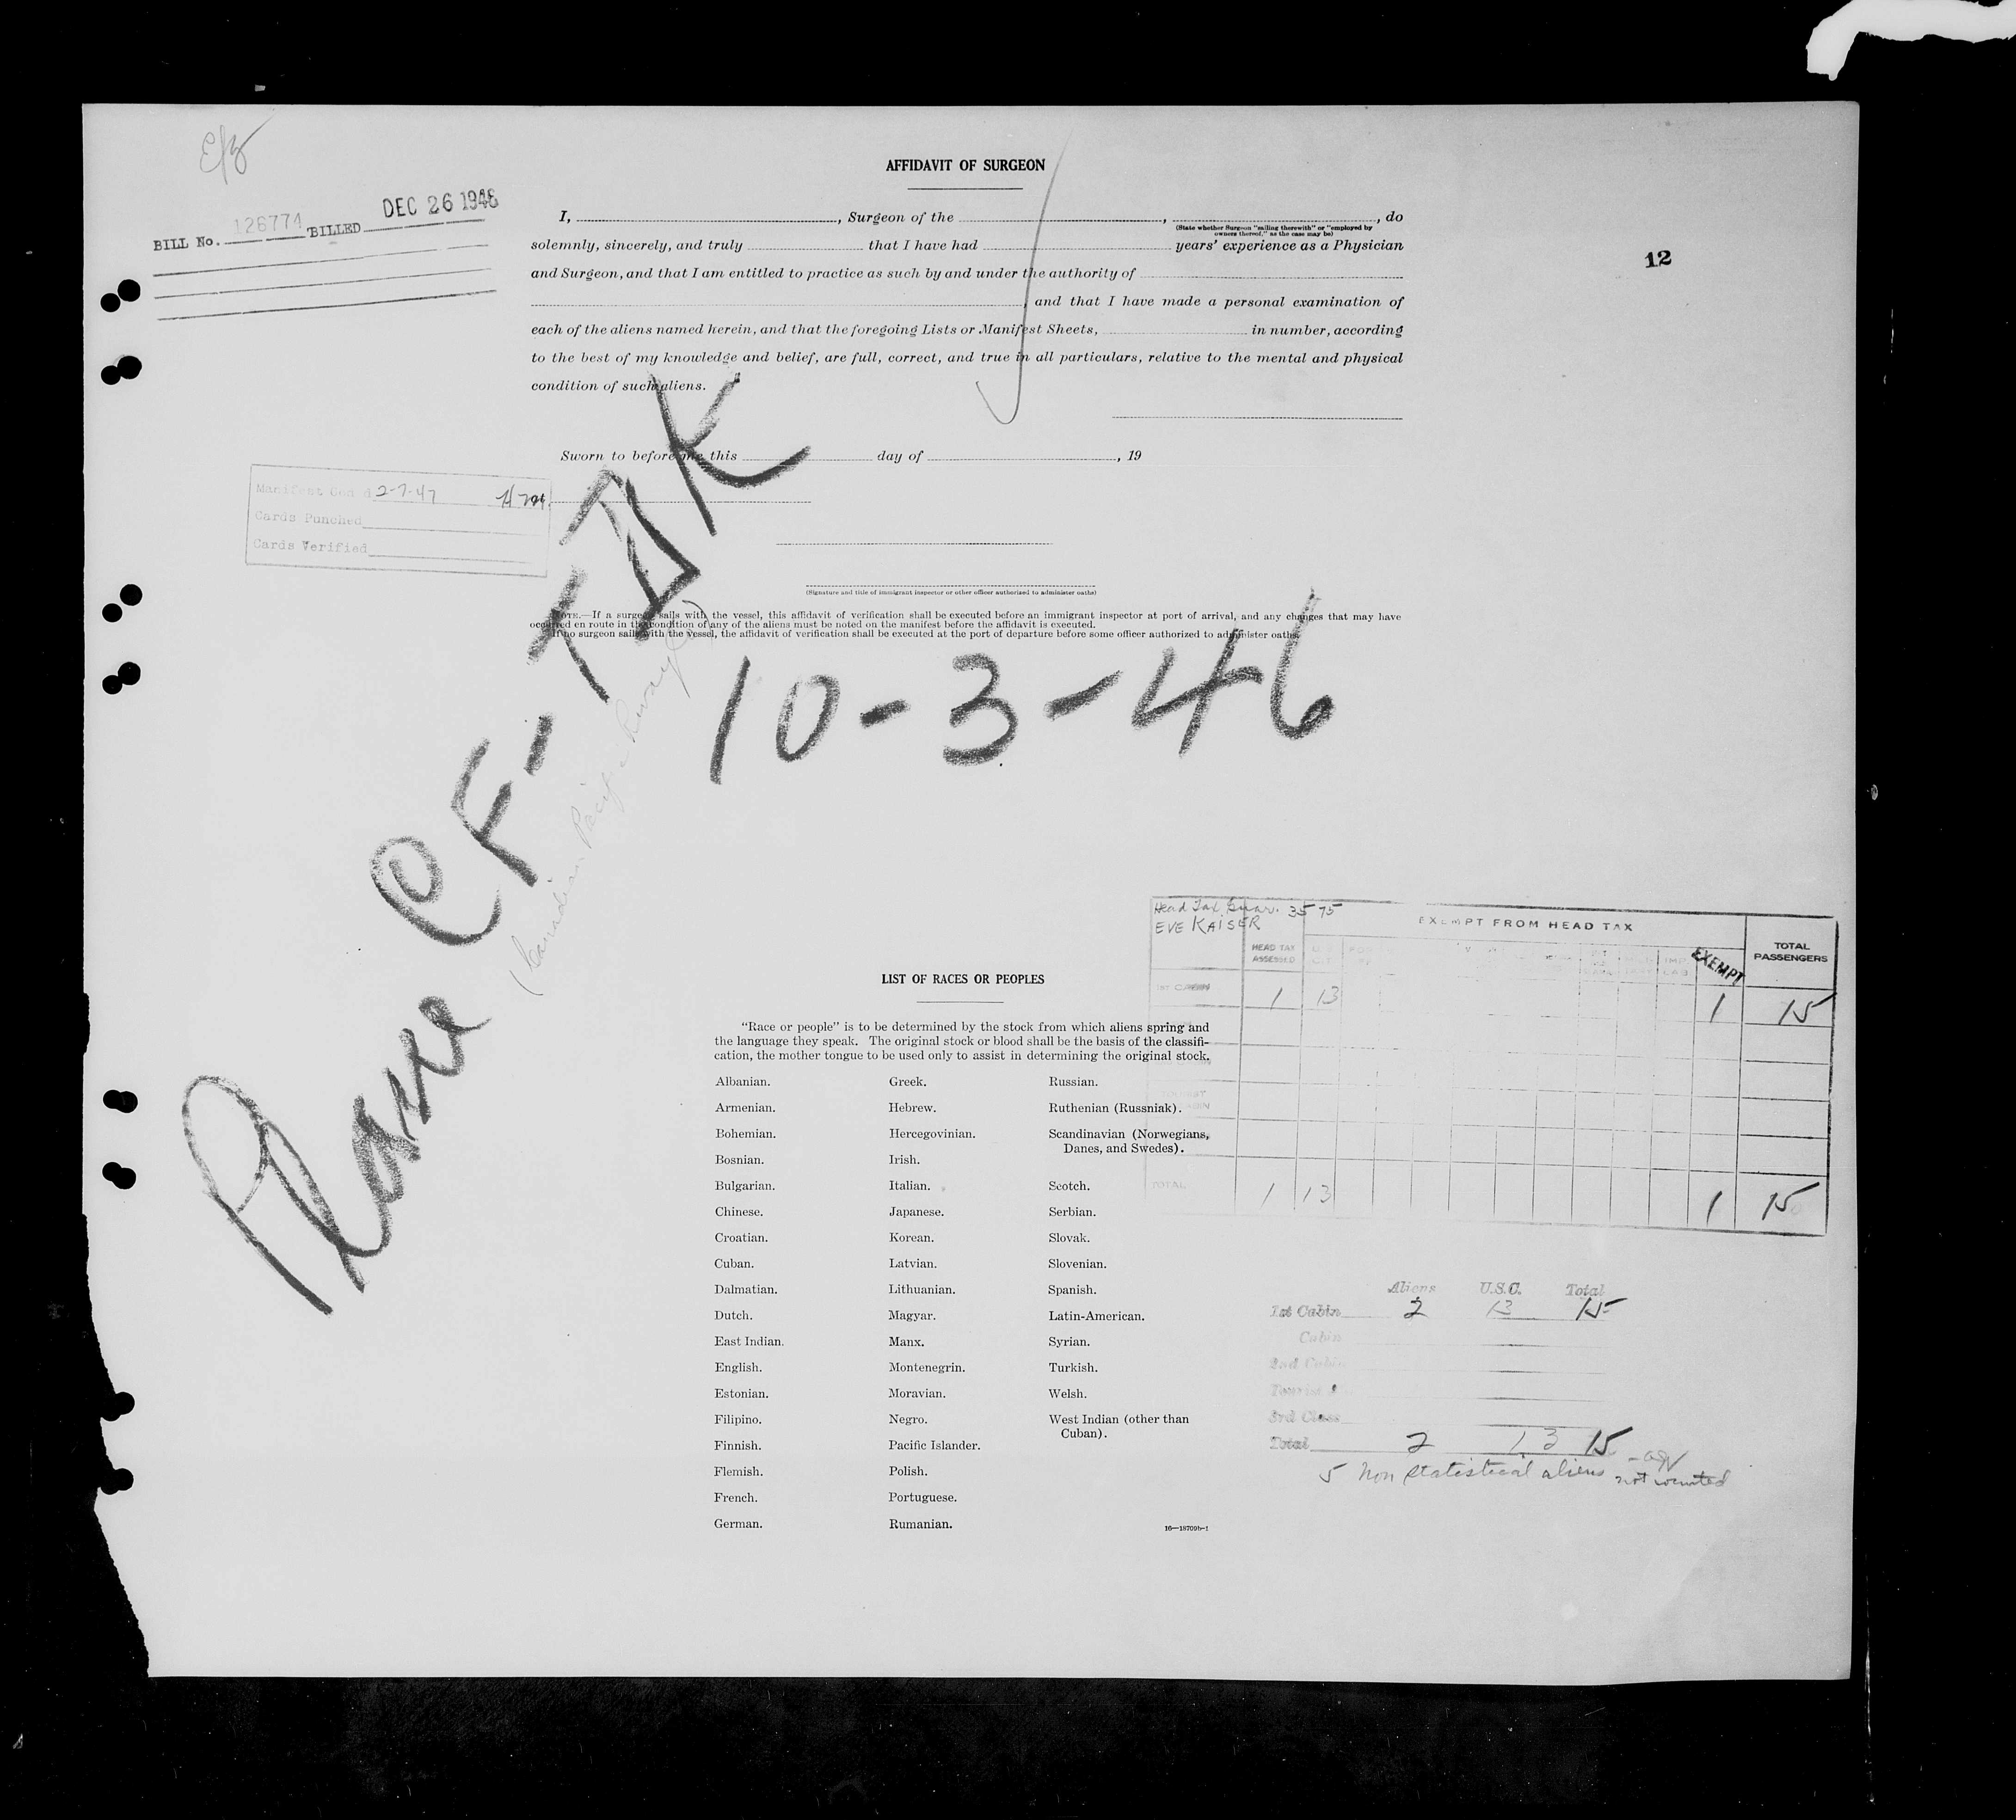 AFFIDAVIT OF SURGEON
BILL No. 126774 BILLED DEC 26 1946
12
I, , Surgeon of the , , do
(State whether Surgeon "sailing therewith" or "employed by owners thereof," as the case may be)
solemnly, sincerely, and truly that I have had years' experience as a Physician
and Surgeon, and that I am entitled to practice as such by and under the authority of
, and that I have made a personal examination of
each of the aliens named herein, and that the foregoing Lists or Manifest Sheets, in number, according
to the best of my knowledge and belief, are full, correct, and true in all particulars, relative to the mental and physical
condition of such aliens.
Sworn to before me this day of , 19
Manifest Cod d 2-7-47
Cards Punched
Cards Verified
(Signature and title of immigrant inspector or other officer authorized to administer oaths)
NOTE.—If a surgeon sails with the vessel, this affidavit of verification shall be executed before an immigrant inspector at port of arrival, and any changes that may have
occurred en route in the condition of any of the aliens must be noted on the manifest before the affidavit is executed.
If no surgeon sails with the vessel, the affidavit of verification shall be executed at the port of departure before some officer authorized to administer oaths.
Plane CF-TDK
10-3-46
Head Tax Guar. 3575
EVE KAISER
EXEMPT FROM HEAD TAX
HEAD TAX ASSESSED
EXEMPT
TOTAL PASSENGERS
1ST CABIN 1 13 1 15
TOTAL 1 13 1 15
LIST OF RACES OR PEOPLES
"Race or people" is to be determined by the stock from which aliens spring and
the language they speak. The original stock or blood shall be the basis of the classifi-
cation, the mother tongue to be used only to assist in determining the original stock.
Albanian. Greek. Russian.
Armenian. Hebrew. Ruthenian (Russniak).
Bohemian. Hercegovinian. Scandinavian (Norwegians,
Danes, and Swedes).
Bosnian. Irish.
Bulgarian. Italian. Scotch.
Chinese. Japanese. Serbian.
Croatian. Korean. Slovak.
Cuban. Latvian. Slovenian.
Dalmatian. Lithuanian. Spanish.
Dutch. Magyar. Latin-American.
East Indian. Manx. Syrian.
English. Montenegrin. Turkish.
Estonian. Moravian. Welsh.
Filipino. Negro. West Indian (other than
Cuban).
Finnish. Pacific Islander.
Flemish. Polish.
French. Portuguese.
German. Rumanian.
16—18709b-1
Aliens U.S.C. Total
1st Cabin 2 13 15
Cabin
2nd Cabin
Tourist
3rd Class
Total 2 13 15
5 Non statistical aliens not counted